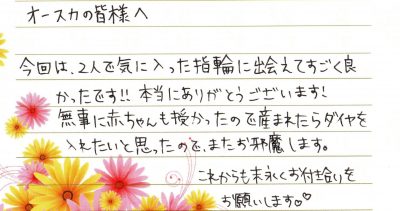 オースカの皆様へ
今回は、2人で気に入った指輪に出会えてすごく良
かったです!!本当にありがとうございます!
無事に赤ちゃんも授かったので産まれたらダイヤを
入れたいと思ったので、またお邪魔します。
これからも末永くお付き合いを
お願いします♡♡